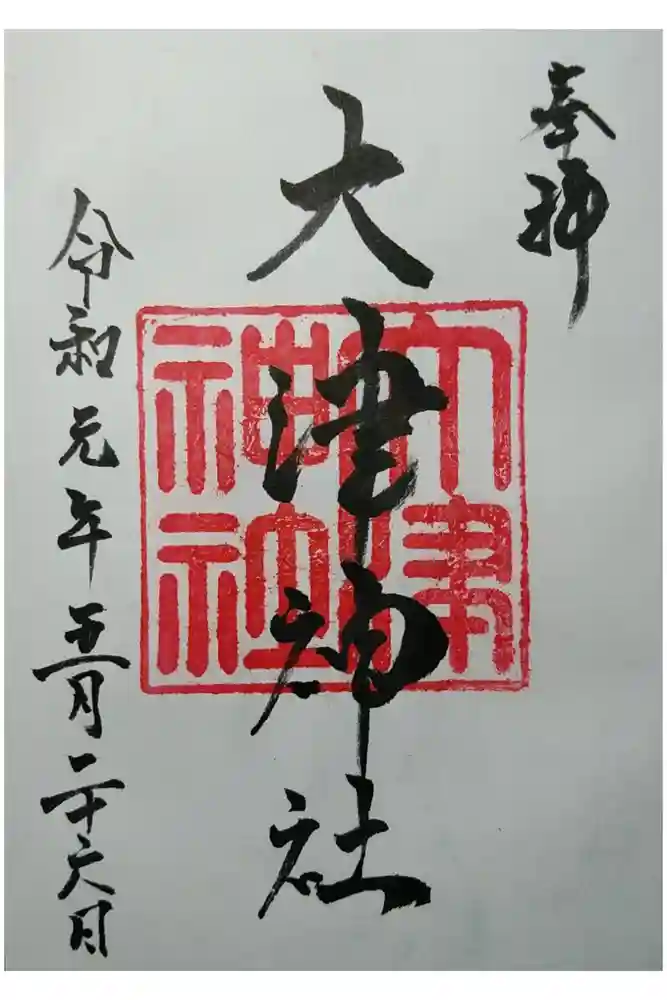 奉拝
大津神社
大津神社
令和元年五月二十六日